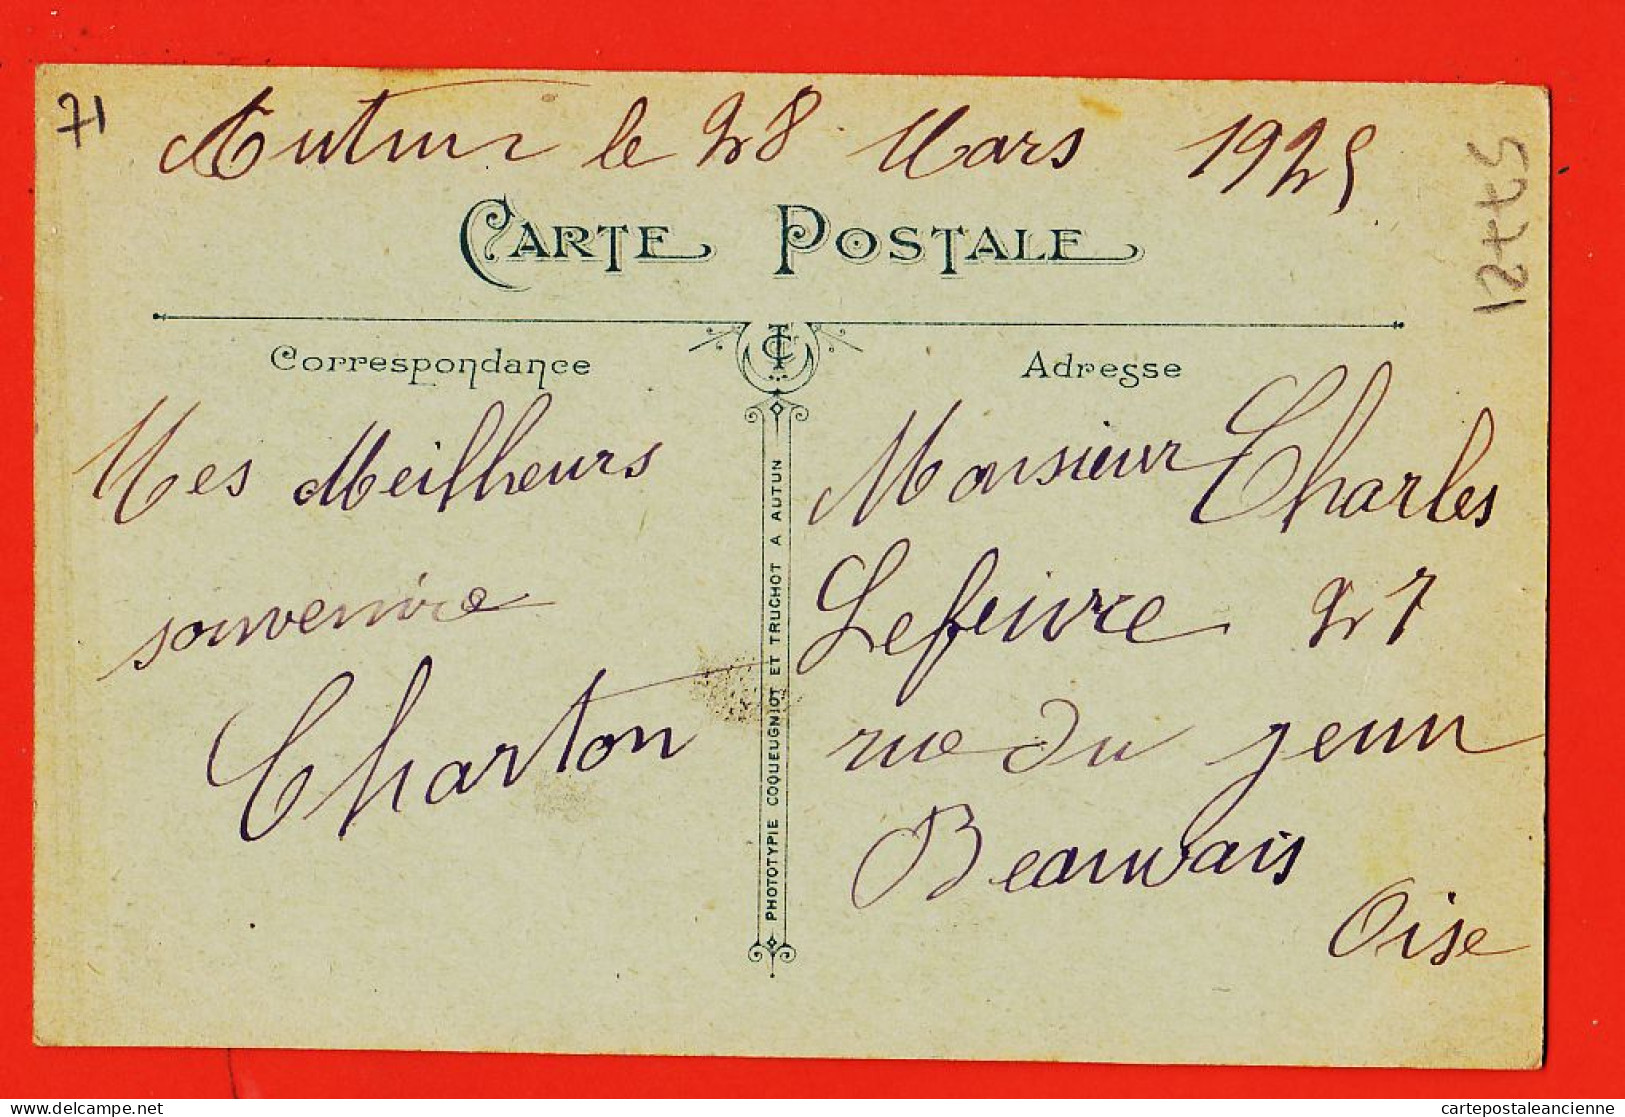 71
Autun le 28 Mars 1925
CARTE POSTALE
Correspondance
Adresse
Mes Meilheurs
souvenire
Charton
PHOTOTYPIE COQUEUGNIOT ET TRUCHOT A AUTUN
Monsieur Charles
Lefeivre 27
rue du
Beauvais
Oise
delcampe.net
cartepostaleancienne